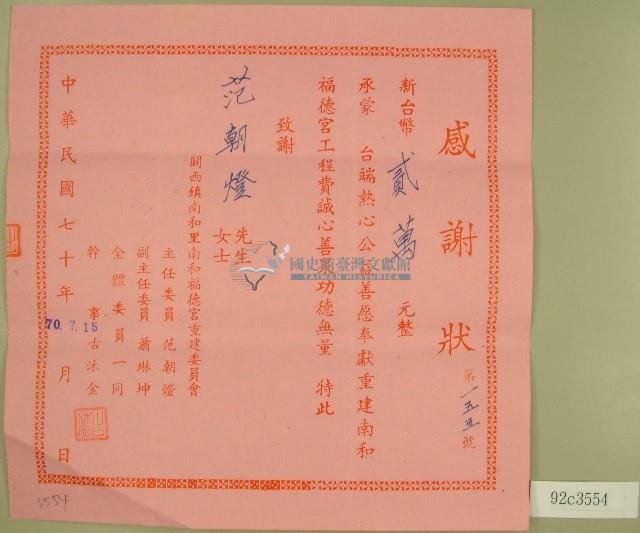 感謝狀
第一五五號
新台幣貳萬元整
承蒙 台端熱心公益善愿奉獻重建南和
福德宮工程費誠心善 功德無量 特此
致謝
范朝燈 先生
女士
關西鎮南和里南和福德宮重建委員會
主任委員 范朝燈
副主任委員 蕭琳坤
全體委員一同
幹事古沐金
中華民國七十年 月 日
70.7.15
國史館臺灣文獻館
TAIWAN HISTORICA
3554
92c3554